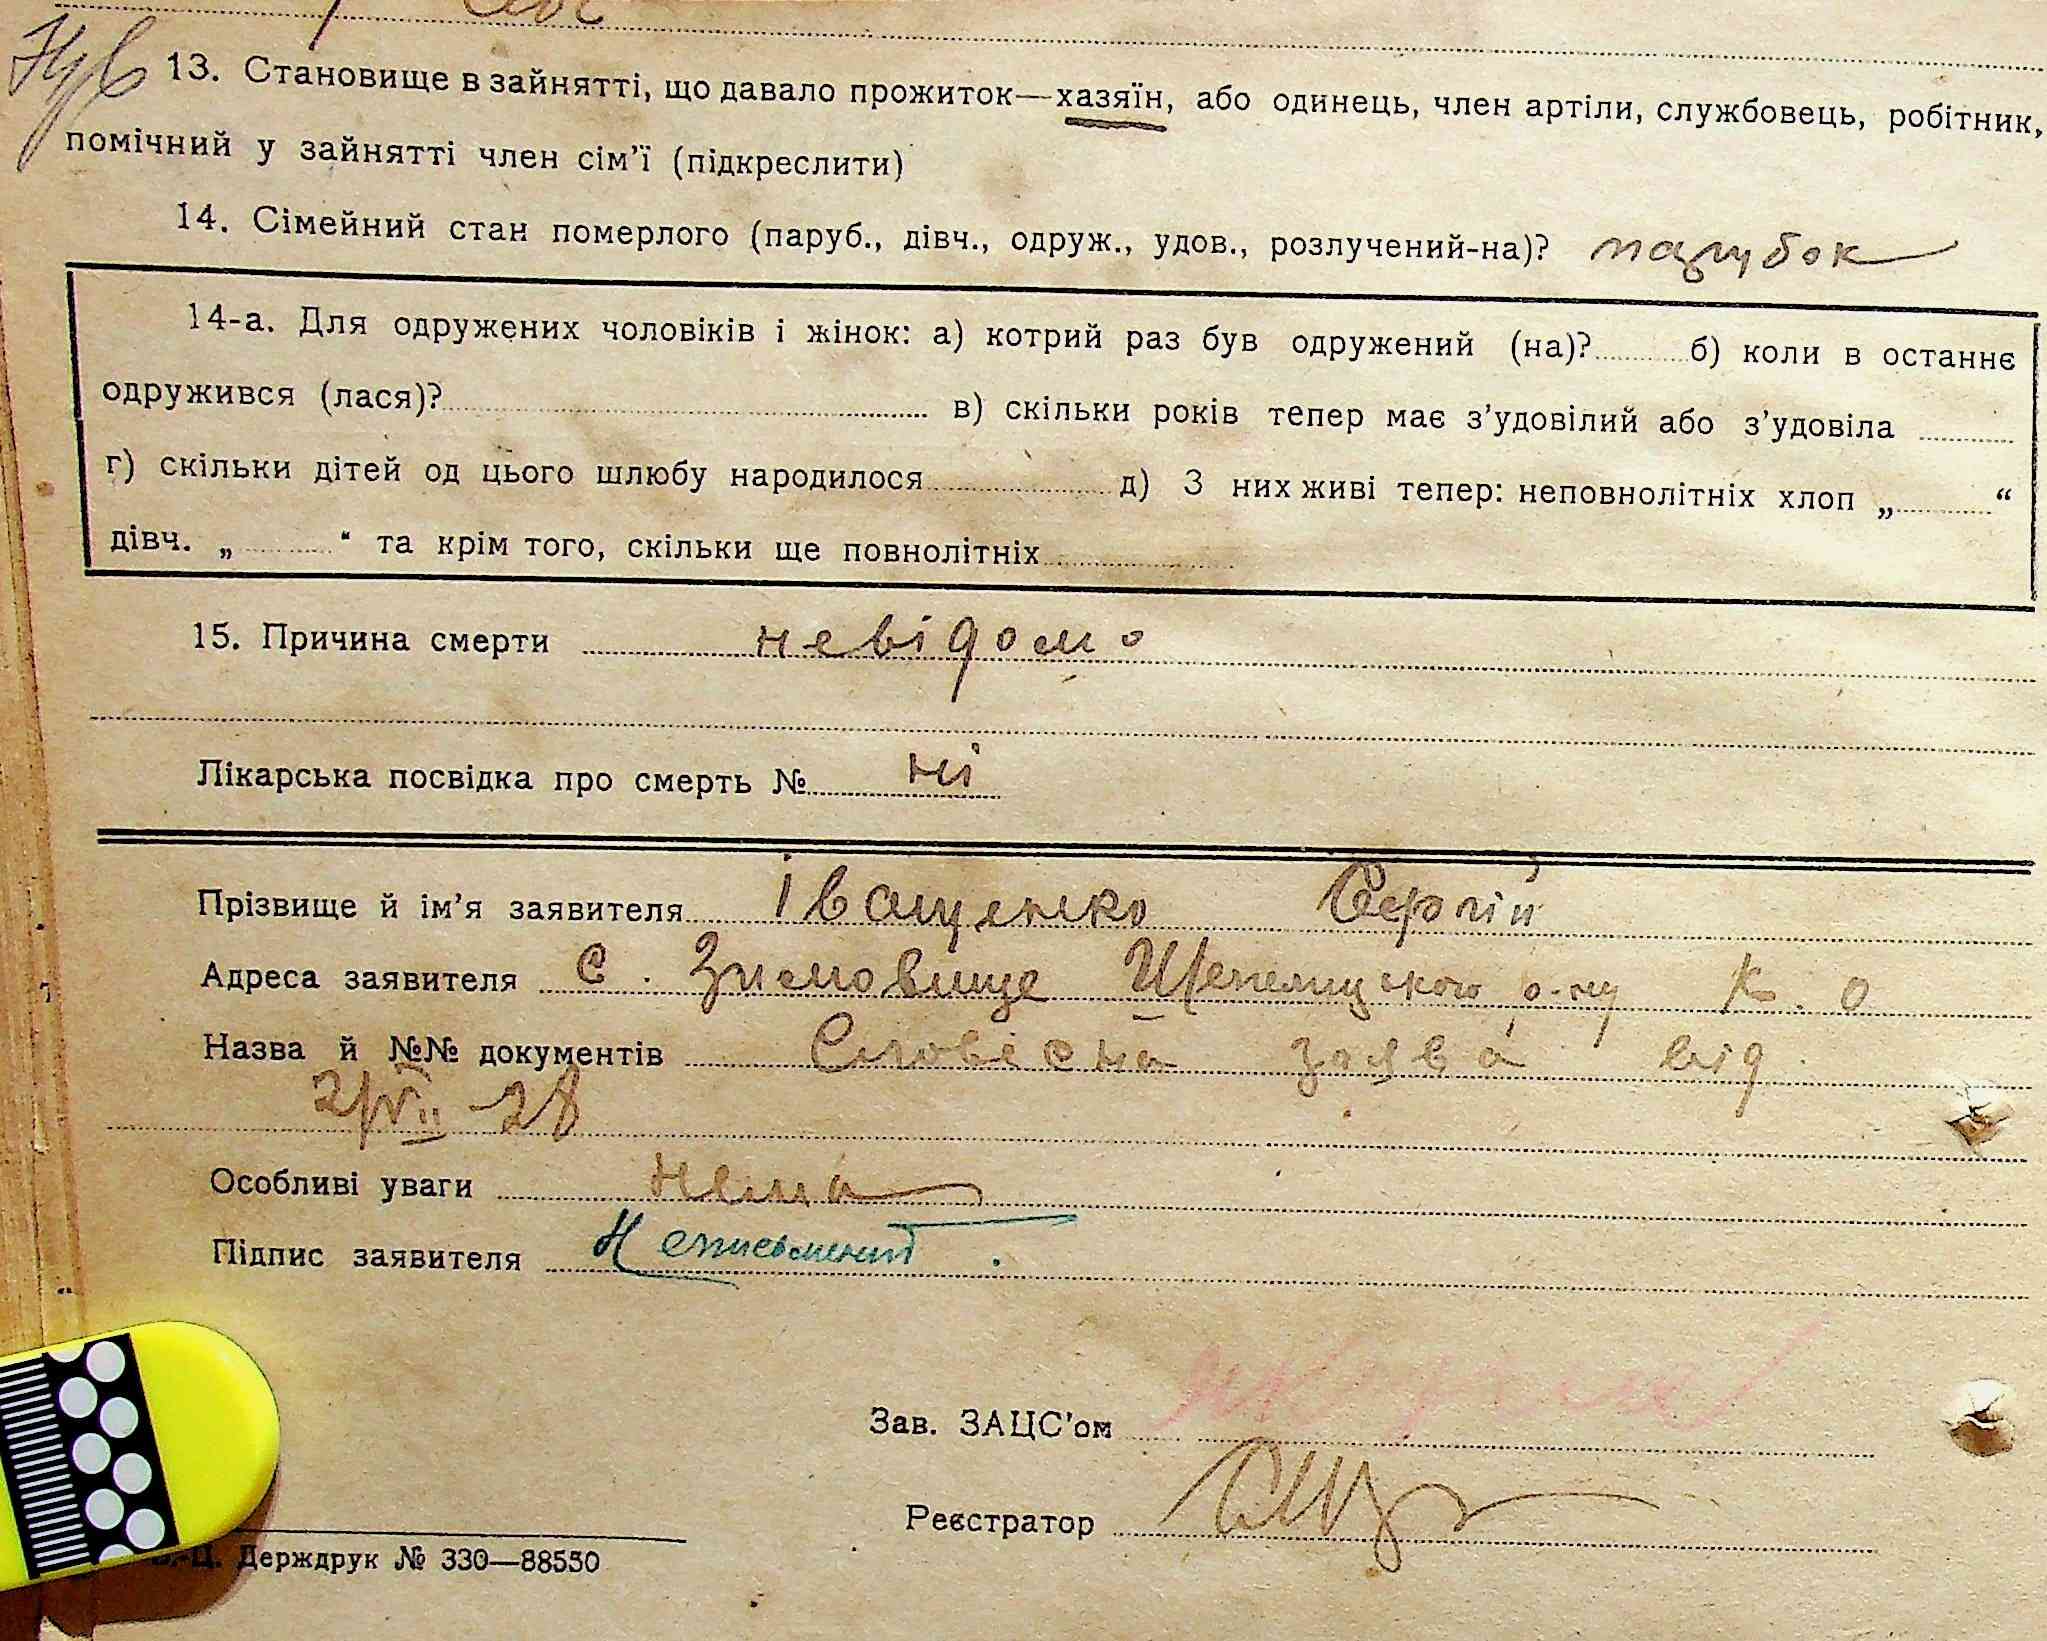 13. Становище в зайнятті, що давало прожиток—хазяїн, або одинець, член артіли, службовець, робітник,
помічний у зайнятті член сім'ї (підкреслити)
14. Сімейний стан померлого (паруб., дівч., одруж., удов., розлучений-на)? парубок
14-а. Для одружених чоловіків і жінок: а) котрий раз був одружений (на)? б) коли в останнє
одружився (лася)? в) скільки років тепер має з'удовілий або з'удовіла
г) скільки дітей од цього шлюбу народилося д) З них живі тепер: неповнолітніх хлоп „ “
дівч. „ “ та крім того, скільки ще повнолітніх
15. Причина смерти невідомо
Лікарська посвідка про смерть № ні
Прізвище й ім'я заявителя Іващенко Сергій
Адреса заявителя с. Зимовище Шепелицького р-ну К. О
Назва й №№ документів Словісна заява від
2/VII-28
Особливі уваги нема
Підпис заявителя Неписьменний.
Зав. ЗАЦС'ом
Реєстратор
Держдрук № 330—88550